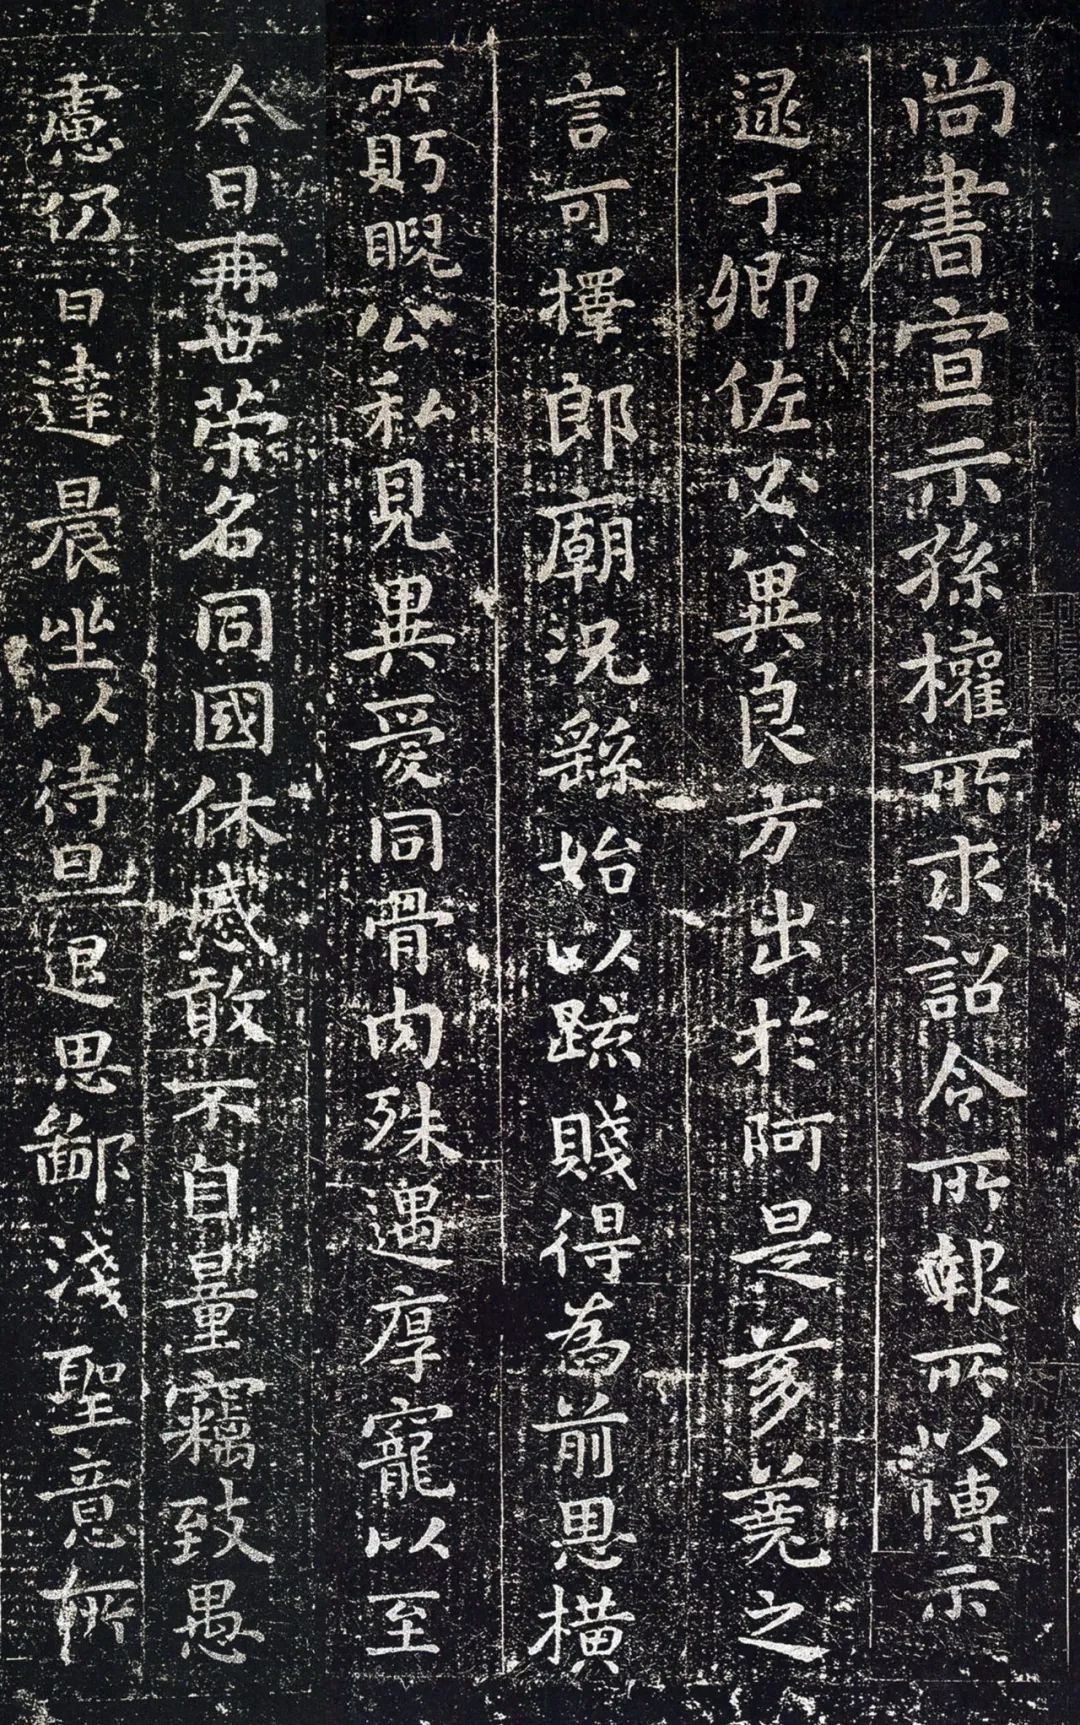 尚書宣示孫權所求詔令所報所以博示
逮于卿佐必冀良方出於阿是芻蕘之
言可擇郎廟況繇始以疏賤得為前恩橫
所盻睨公私見異愛同骨肉殊遇厚寵以至
今日再世榮名同國休慼敢不自量竊致愚
慮仍日達晨坐以待旦退思鄙淺聖意所